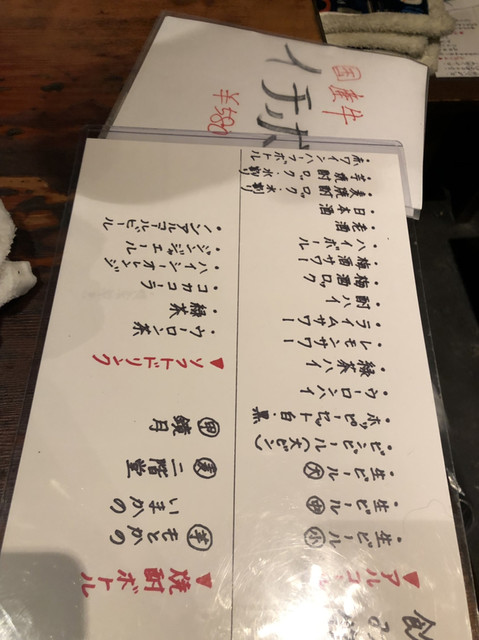 国産牛
イチボ
¥580
▼アルコール
・生ビール 小
・生ビール 中
・生ビール 大
・ビンビール(大ビン)
・ホッピーセット 白・黒
・ウーロンハイ
・緑茶ハイ
・レモンサワー
・ライムサワー
・酎ハイ
・梅酒ロック
・梅酒サワー
・ハイボール
・老酒
・日本酒
・麦焼酎 ロック・水割
・芋焼酎 ロック・水割
・赤ワインハーフボトル
▼焼酎ボトル
芋 もとかの
いまかの
麦 二階堂
甲 鏡月
▼ソフトドリンク
・ウーロン茶
・緑茶
・コカコーラ
・ハイシーオレンジ
・ジンジャエール
・ノンアルコールビール